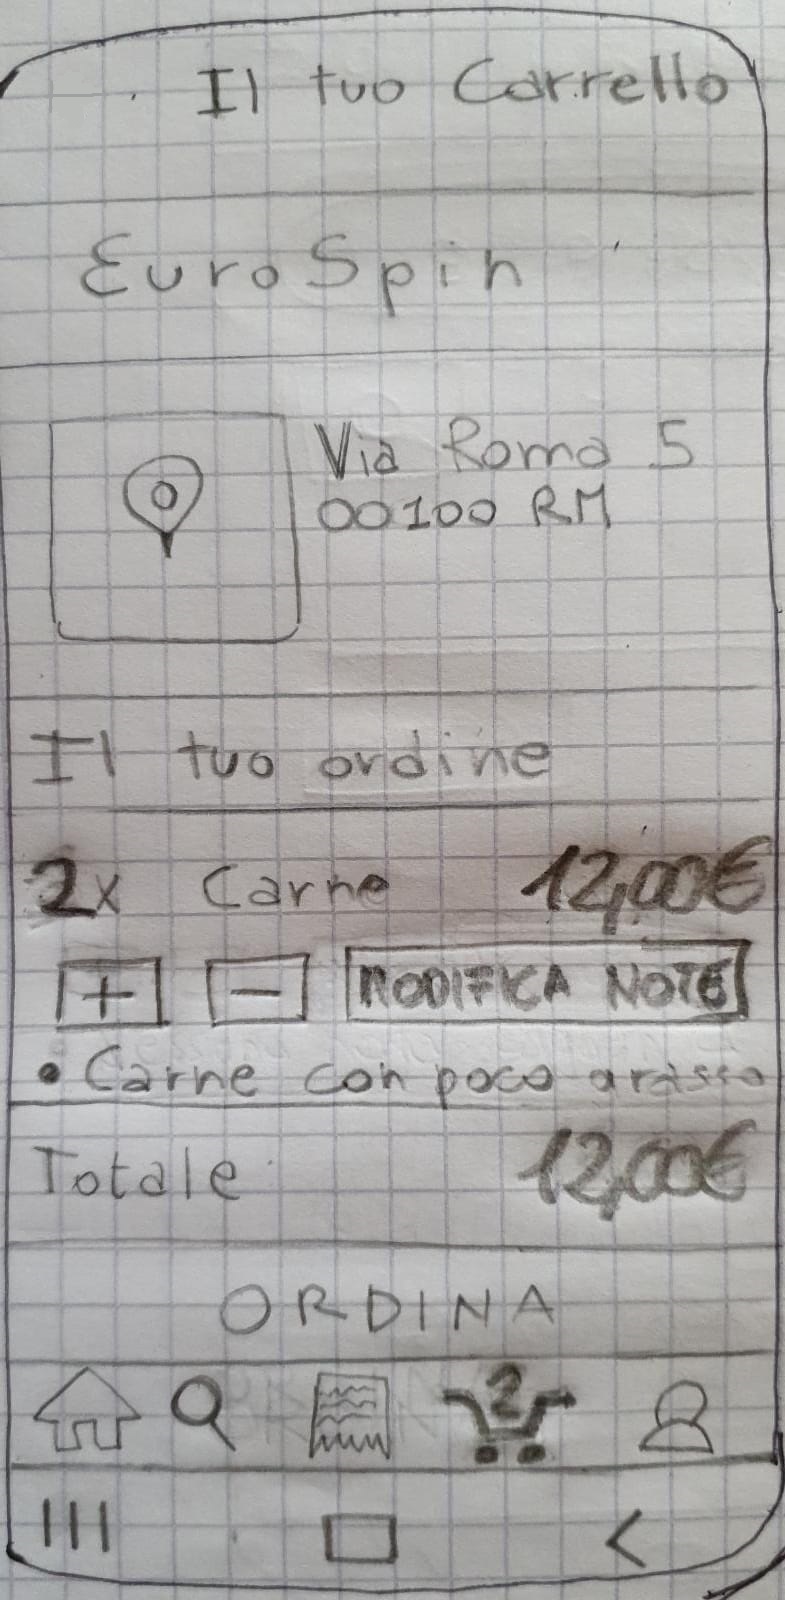 Il tuo Carrello
EuroSpin
Via Roma 5
00100 RM
Il tuo ordine
2x Carne 12,00€
+ - MODIFICA NOTE
• Carne con poco grasso
Totale 12,00€
ORDINA
2